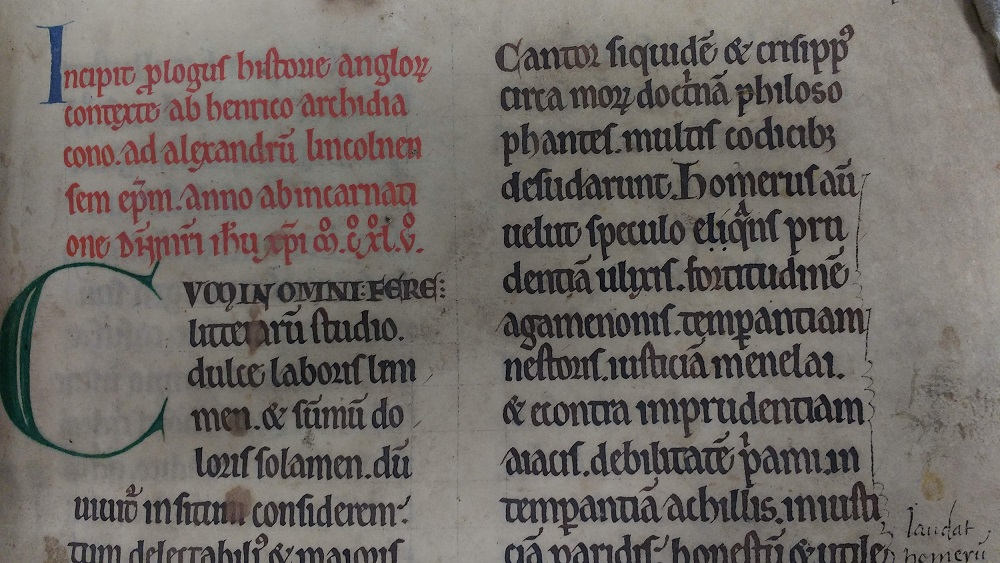 Incipit ꝓlogus historie anglorꝝ
contexte ab henrico archidia
cono. ad alexandrū lincolnen
sem ep̄m. anno ab incarnati
one dn̄i nr̄i ih̄u xp̄i m̊. c̊. xl̊. v̊.
CVM IN OMNI: FERE:
litterarū studio.
dulce laboris leni
men. & sūmū do
loris solamen. dū
uiuit᷑ insitum considerem᷑.
tum delectabilꝰ & maioris
Cantor siquidē & crisippꝰ
circa morꝝ doct'nā philoso
phantes. multis codicibꝫ
desudarunt. Homerus aū
uelut speculo eliq̄ns pru
dentiā ulixis. fortitudinē
agamenonis. temꝑantiam
nestoris. iusticiā menelai.
& econtra imprudentiam
aiacis. debilitatē p'ami. in
temꝑantiā achillis. iniusti
ciā paridis. honestū & utile
laudat
homerū